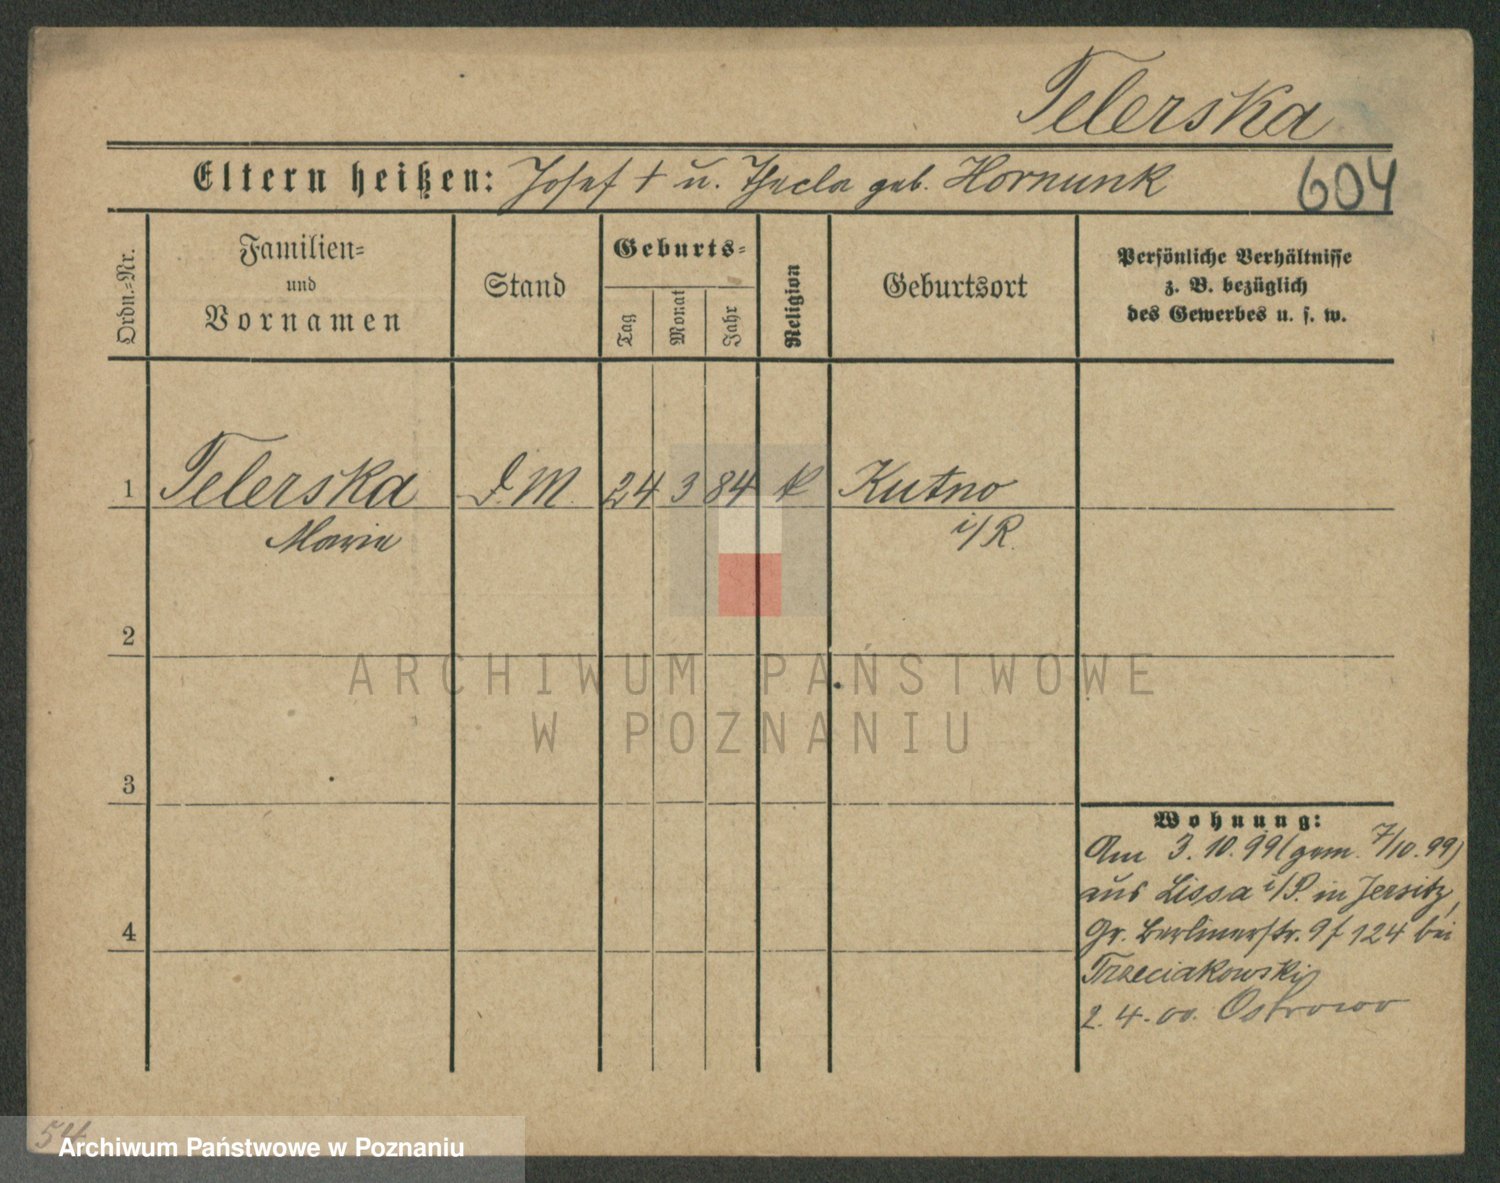 Telerska
Eltern heißen: Josef † u. Thecla geb. Hornunk
604
Ordn.-Nr.
Familien-
und
Vornamen
Stand
Geburts-
Tag
Monat
Jahr
Religion
Geburtsort
Persönliche Verhältnisse
z. B. bezüglich
des Gewerbes u. s. w.
1 Telerska D. M. 24 3 84 k Kutno
Marie i/R.
2
3
4
ARCHIWUM PAŃSTWOWE
W POZNANIU
Wohnung:
Am 3. 10. 99 (gem. 7/10. 99)
aus Lissa i/P. in Jersitz,
Gr. Berlinerstr. 9 f 124 bei
Trzeciakowski
2. 4. 00. Ostrowo
54
Archiwum Państwowe w Poznaniu